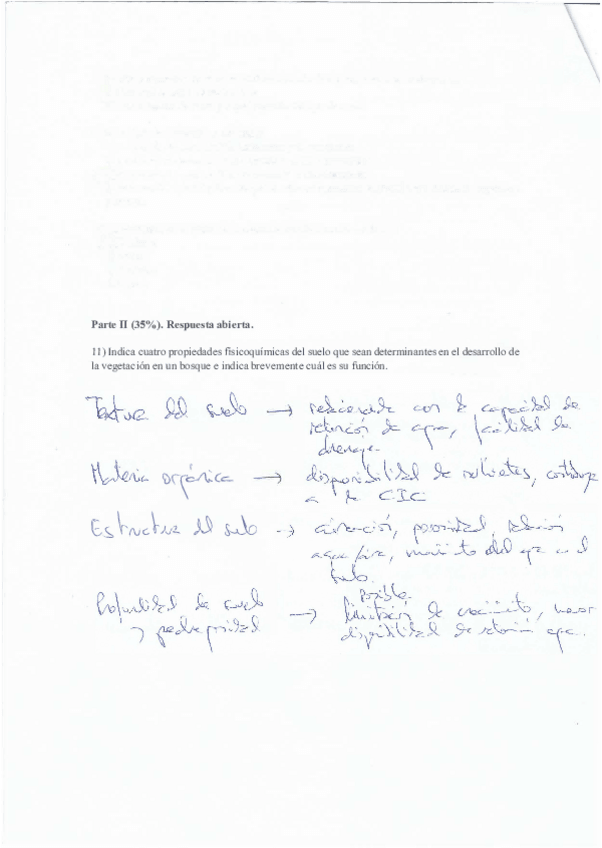 Parte II (35%). Respuesta abierta.
11) Indica cuatro propiedades fisicoquímicas del suelo que sean determinantes en el desarrollo de
la vegetación en un bosque e indica brevemente cuál es su función.
Textura del suelo → relacionada con la capacidad de
retención de agua, facilidad de
drenaje.
Materia orgánica → disponibilidad de nutrientes, contribuye
a la CIC
Estructura del suelo → aireación, porosidad, relación
agua/aire, movimiento del agua en el
suelo.
Profundidad de suelo
y pedregosidad → Posible
limitación de crecimiento, menor
disponibilidad de retención agua.